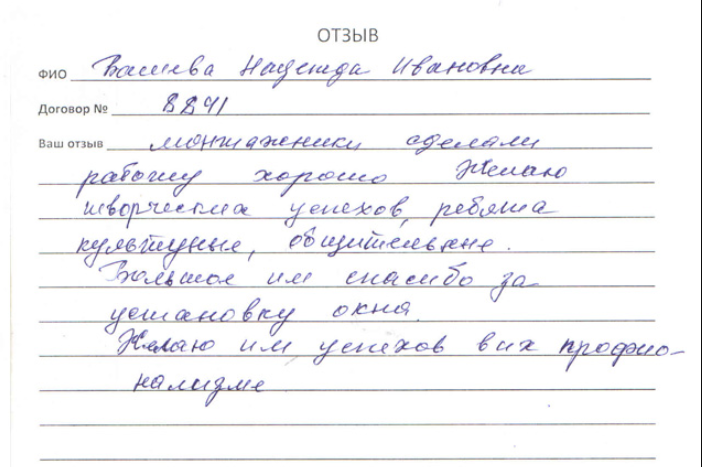 ОТЗЫВ
ФИО Надежда Ивановна
Договор № 8841
Ваш отзыв монтажники сделали
работу хорошо Желаю
творчества успехов, ребята
культурные, общительные.
Большое им спасибо за
установку окна.
Желаю им успехов в их профио-
нализме